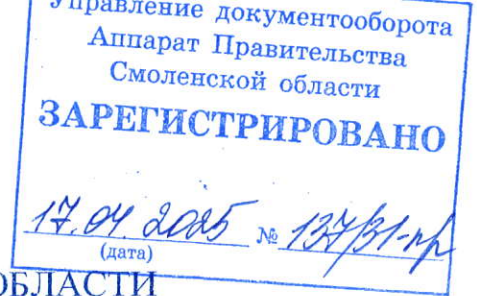 Управление документооборота
Аппарат Правительства
Смоленской области
ЗАРЕГИСТРИРОВАНО
17.04 2025 № 137/31-пр
(дата)
ОБЛАСТИ